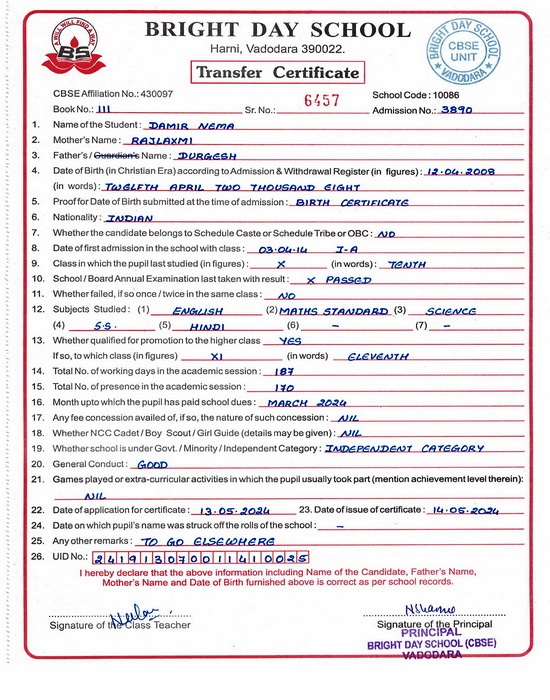 A WILL WILL FIND A WAY
BS
BRIGHT DAY SCHOOL
Harni, Vadodara 390022.
Transfer Certificate
BRIGHT DAY SCHOOL
CBSE
UNIT
VADODARA
CBSE Affiliation No.: 430097 6457 School Code : 10086
Book No.: 111 Sr. No.: Admission No.: 3890
1. Name of the Student : DAMIR NEMA
2. Mother's Name : RAJLAXMI
3. Father's / Guardian's Name : DURGESH
4. Date of Birth (in Christian Era) according to Admission & Withdrawal Register (in figures) : 12.04.2008
(in words) : TWELFTH APRIL TWO THOUSAND EIGHT
5. Proof for Date of Birth submitted at the time of admission : BIRTH CERTIFICATE
6. Nationality : INDIAN
7. Whether the candidate belongs to Schedule Caste or Schedule Tribe or OBC : NO
8. Date of first admission in the school with class : 03.04.14 I-A
9. Class in which the pupil last studied (in figures) : X (in words) : TENTH
10. School / Board Annual Examination last taken with result : X PASSED
11. Whether failed, if so once / twice in the same class : NO
12. Subjects Studied : (1) ENGLISH (2) MATHS STANDARD (3) SCIENCE
(4) S.S. (5) HINDI (6) – (7) –
13. Whether qualified for promotion to the higher class YES
If so, to which class (in figures) XI (in words) ELEVENTH
14. Total No. of working days in the academic session : 187
15. Total No. of presence in the academic session : 170
16. Month upto which the pupil has paid school dues : MARCH 2024
17. Any fee concession availed of, if so, the nature of such concession : NIL
18. Whether NCC Cadet / Boy Scout / Girl Guide (details may be given) : NIL
19. Whether school is under Govt. / Minority / Independent Category : INDEPENDENT CATEGORY
20. General Conduct : GOOD
21. Games played or extra-curricular activities in which the pupil usually took part (mention achievement level therein):
NIL
22. Date of application for certificate : 13.05.2024 23. Date of issue of certificate : 14.05.2024
24. Date on which pupil's name was struck off the rolls of the school : –
25. Any other remarks : TO GO ELSEWHERE
26. UID No.: 241913070011410025
I hereby declare that the above information including Name of the Candidate, Father's Name,
Mother's Name and Date of Birth furnished above is correct as per school records.
Signature of the Class Teacher Signature of the Principal
PRINCIPAL
BRIGHT DAY SCHOOL (CBSE)
VADODARA